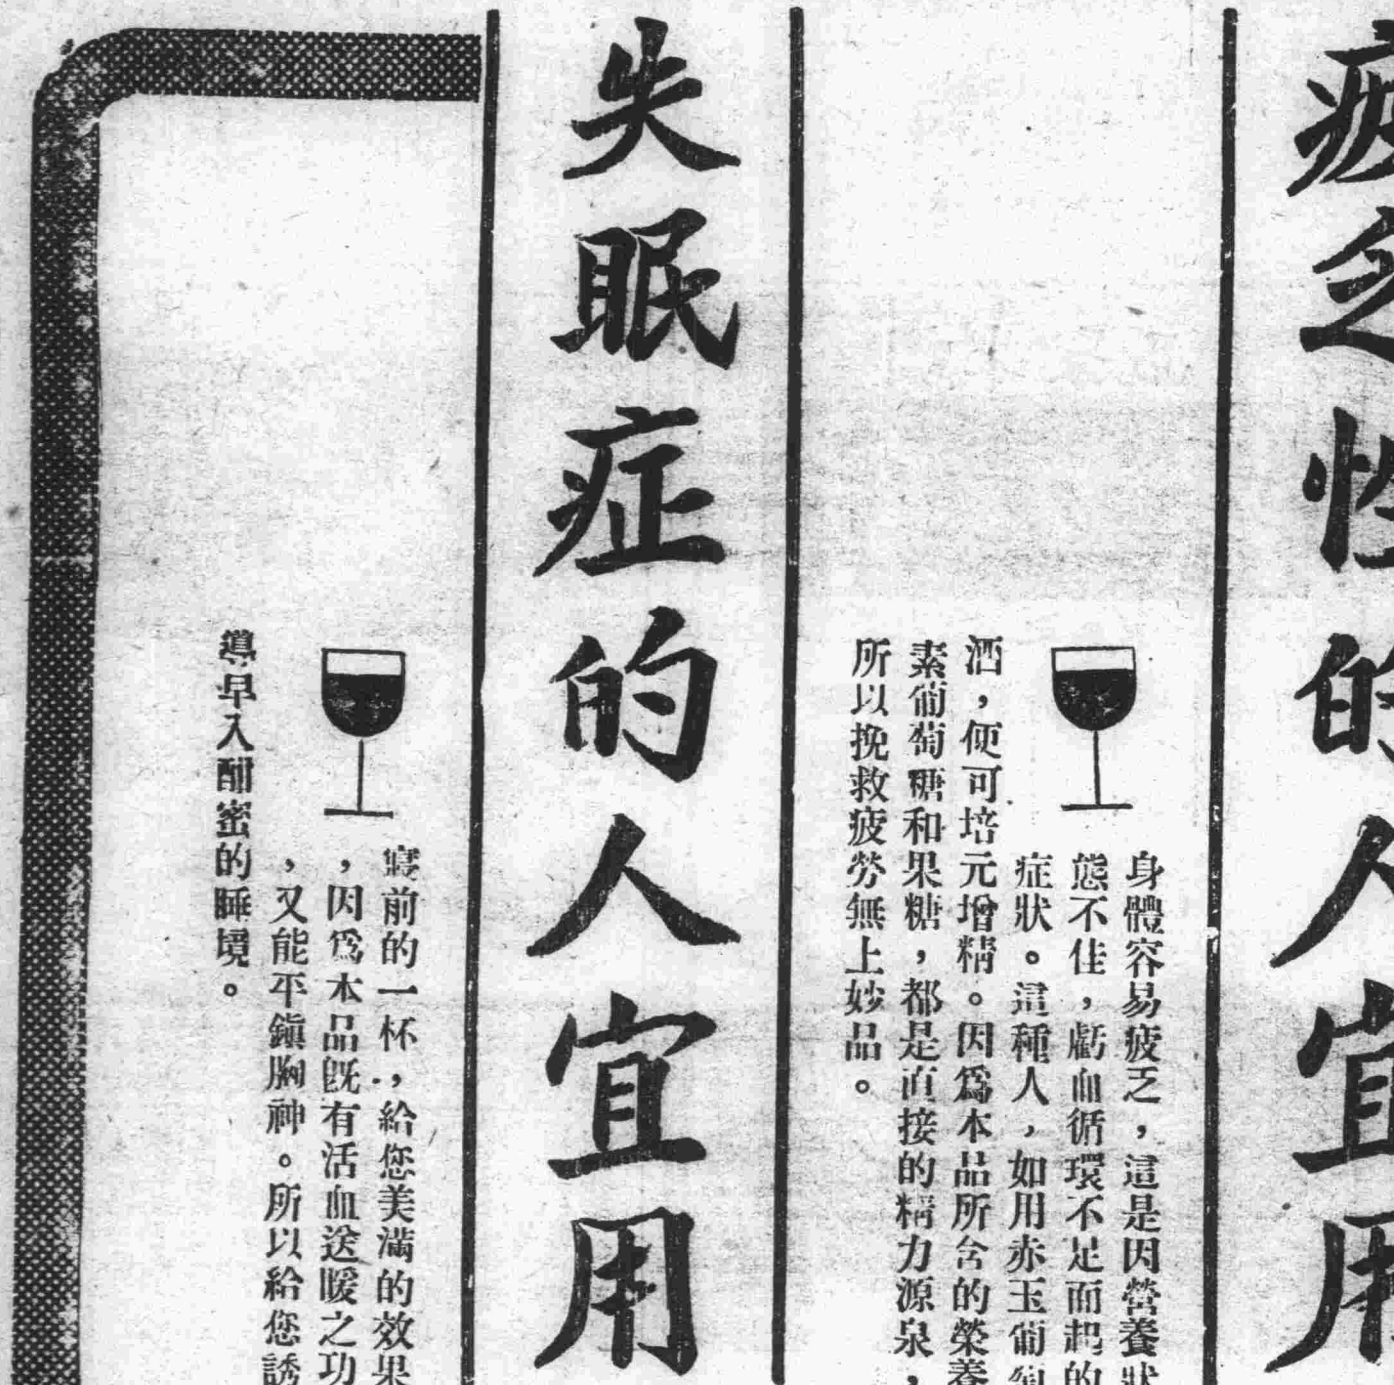 疲乏性的人宜用
身體容易疲乏，這是因營養狀
態不佳，虧血循環不足而起的
症狀。這種人，如用赤玉葡萄
酒，便可培元增精。因爲本品所含的榮養
素葡萄糖和果糖，都是直接的精力源泉，
所以挽救疲勞無上妙品。
失眠症的人宜用
寢前的一杯，給您美滿的效果
，因爲本品既有活血送暖之功
，又能平鎭胸神。所以給您誘
導早入酣密的睡境。